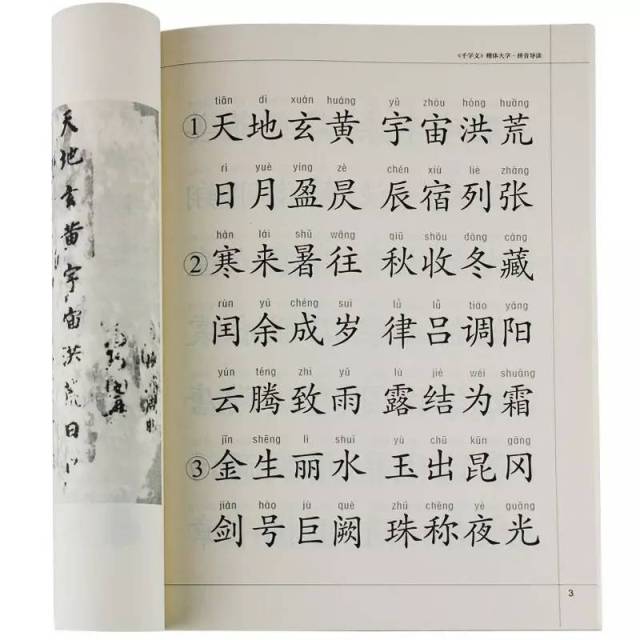 天地玄黄宇宙洪荒日
《千字文》楷体大字·拼音导读
tiān dì xuán huáng yǔ zhòu hóng huāng
①天地玄黄 宇宙洪荒
rì yuè yíng zè chén xiù liè zhāng
日月盈昃 辰宿列张
hán lái shǔ wǎng qiū shōu dōng cáng
②寒来暑往 秋收冬藏
rùn yú chéng suì lǜ lǚ tiáo yáng
闰余成岁 律吕调阳
yún téng zhì yǔ lù jié wéi shuāng
云腾致雨 露结为霜
jīn shēng lì shuǐ yù chū kūn gāng
③金生丽水 玉出昆冈
jiàn hào jù què zhū chēng yè guāng
剑号巨阙 珠称夜光
3